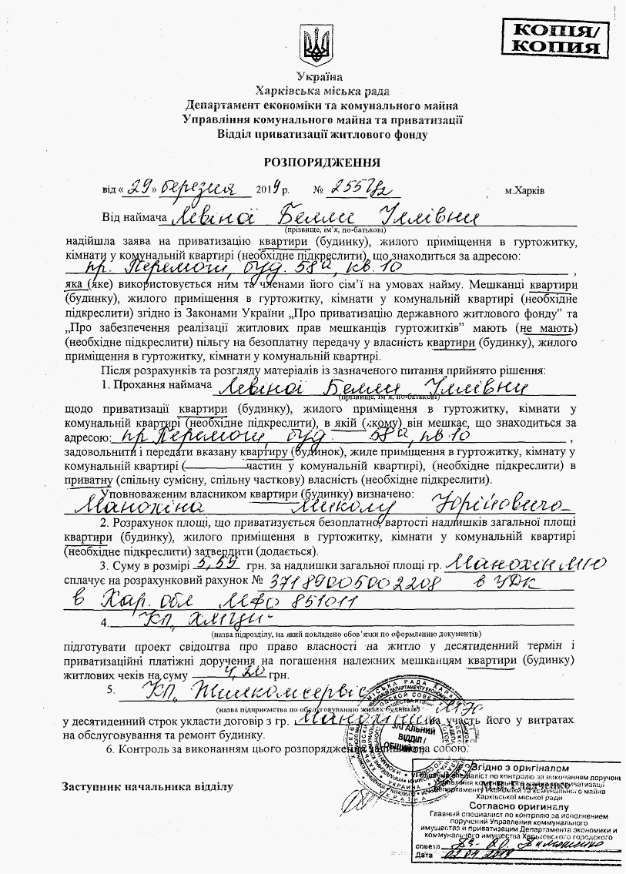 КОПІЯ/
КОПИЯ
Україна
Харківська міська рада
Департамент економіки та комунального майна
Управління комунального майна та приватизації
Відділ приватизації житлового фонду
РОЗПОРЯДЖЕННЯ
від « 29 » березня 2019 р. № м.Харків
Від наймача Левіної Белли Іллівни
(прізвище, ім'я, по-батькові)
надійшла заява на приватизацію квартири (будинку), жилого приміщення в гуртожитку,
кімнати у комунальній квартирі (необхідне підкреслити), що знаходиться за адресою:
пр. Перемоги, буд. 58а, кв. 10 ,
яка (яке) використовується ним та членами його сім'ї на умовах найму. Мешканці квартири
(будинку), жилого приміщення в гуртожитку, кімнати у комунальній квартирі (необхідне
підкреслити) згідно із Законами України „Про приватизацію державного житлового фонду" та
„Про забезпечення реалізації житлових прав мешканців гуртожитків" мають (не мають)
(необхідне підкреслити) пільгу на безоплатну передачу у власність квартири (будинку), жилого
приміщення в гуртожитку, кімнати у комунальній квартирі.
Після розрахунків та розгляду матеріалів із зазначеного питання прийнято рішення:
1. Прохання наймача Левіної Белли Іллівни
(прізвище, ім'я, по-батькові)
щодо приватизації квартири (будинку), жилого приміщення в гуртожитку, кімнати у
комунальній квартирі (необхідне підкреслити), в якій (якому) він мешкає, що знаходиться за
адресою: пр Перемоги, буд. 58а, кв 10 ,
задовольнити і передати вказану квартиру (будинок), жиле приміщення в гуртожитку, кімнату у
комунальній квартирі ( частин у комунальній квартирі), (необхідне підкреслити) в
приватну (спільну сумісну, спільну часткову) власність (необхідне підкреслити).
Уповноваженим власником квартири (будинку) визначено:
Манохіна Миколу Юрійовича
2. Розрахунок площі, що приватизується безоплатно, вартості надлишків загальної площі
квартири (будинку), жилого приміщення в гуртожитку, кімнати у комунальній квартирі
(необхідне підкреслити) затвердити (додається).
3. Суму в розмірі 5,59 грн. за надлишки загальної площі гр. Манохін МЮ
сплачує на розрахунковий рахунок № 37189005002208 в УДК
в Хар. обл МФО 851011
4. КП
(назва підрозділу, на який покладено обов'язки по оформленню документів)
підготувати проект свідоцтва про право власності на житло у десятиденний термін і
приватизаційні платіжні доручення на погашення належних мешканцям квартири (будинку)
житлових чеків на суму 4,20 грн.
5. КП Жилкомсервіс
(назва підприємства по обслуговуванню жилих будинків)
у десятиденний строк укласти договір з гр. Манохіним М.Ю на участь його у витратах
на обслуговування та ремонт будинку.
6. Контроль за виконанням цього розпорядження залишаю за собою.
ЗАГАЛЬНИЙ
ВІДДІЛ /
ОБЩИЙ
Заступник начальника відділу
Згідно з оригіналом
Головний спеціаліст по контролю за виконанням доручень
Департаменту економіки та комунального майна
Харківської міської ради
Согласно оригиналу
Главный специалист по контролю за исполнением
поручений Управления коммунального
имущества и приватизации Департамента экономики и
коммунального имущества Харьковского городского
совета
Дата